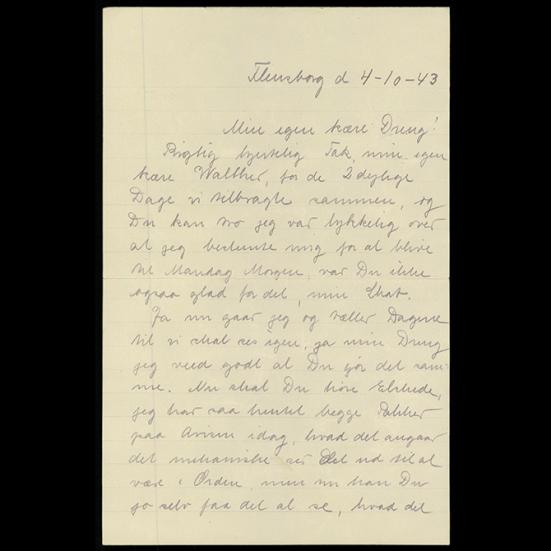 Flensborg d 4-10-43
Min egen kære Dreng!
Rigtig hjertelig Tak, min egen
kære Walther, for de 2 dejlige
Dage vi tilbragte sammen, og
Du kan tro jeg var lykkelig over
at jeg bestemte mig for at blive
til Mandag Morgen, var Du ikke
ogsaa glad for det, min Skat.
Ja nu gaar jeg og tæller Dagene
til vi skal ses igen, ja min Dreng
jeg veed godt at Du gør det sam-
me. Nu skal Du høre Elskede,
jeg har saa hentet begge Pakker
paa Avisen idag, hvad det angaar
det mekaniske ser det ud til at
være i Orden, men nu kan Du
jo selv faa det at se, hvad det